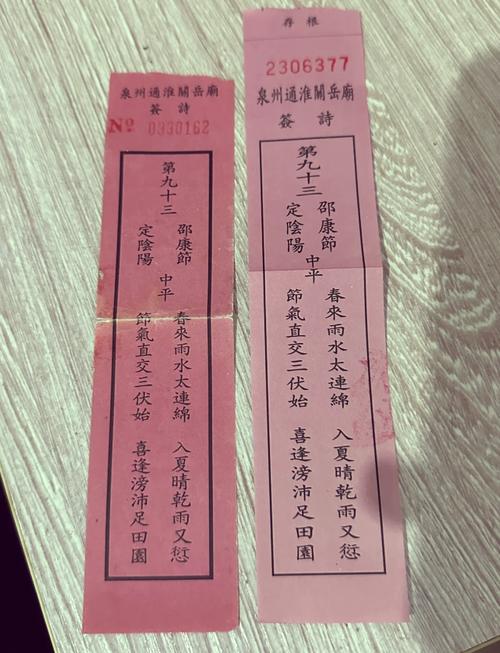 泉州通淮關岳廟
簽詩
№ 0330162
第九十三
邵康節
定陰陽
中平
春來雨水太連綿 入夏晴乾雨又愆
節氣直交三伏始 喜逢滂沛足田園
存根
2306377
泉州通淮關岳廟
簽詩
第九十三
邵康節
定陰陽
中平
春來雨水太連綿 入夏晴乾雨又愆
節氣直交三伏始 喜逢滂沛足田園